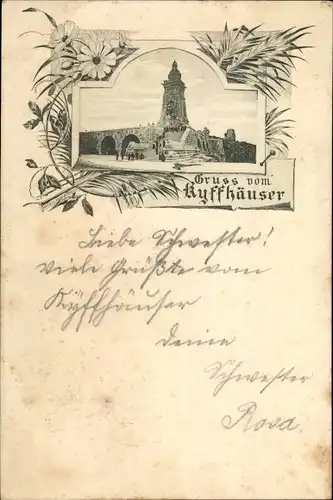 Gruss vom
Kyffhäuser
Liebe Schwester!
viele Grüßte vom
Kyffhäuser
deine
Schwester
Rosa